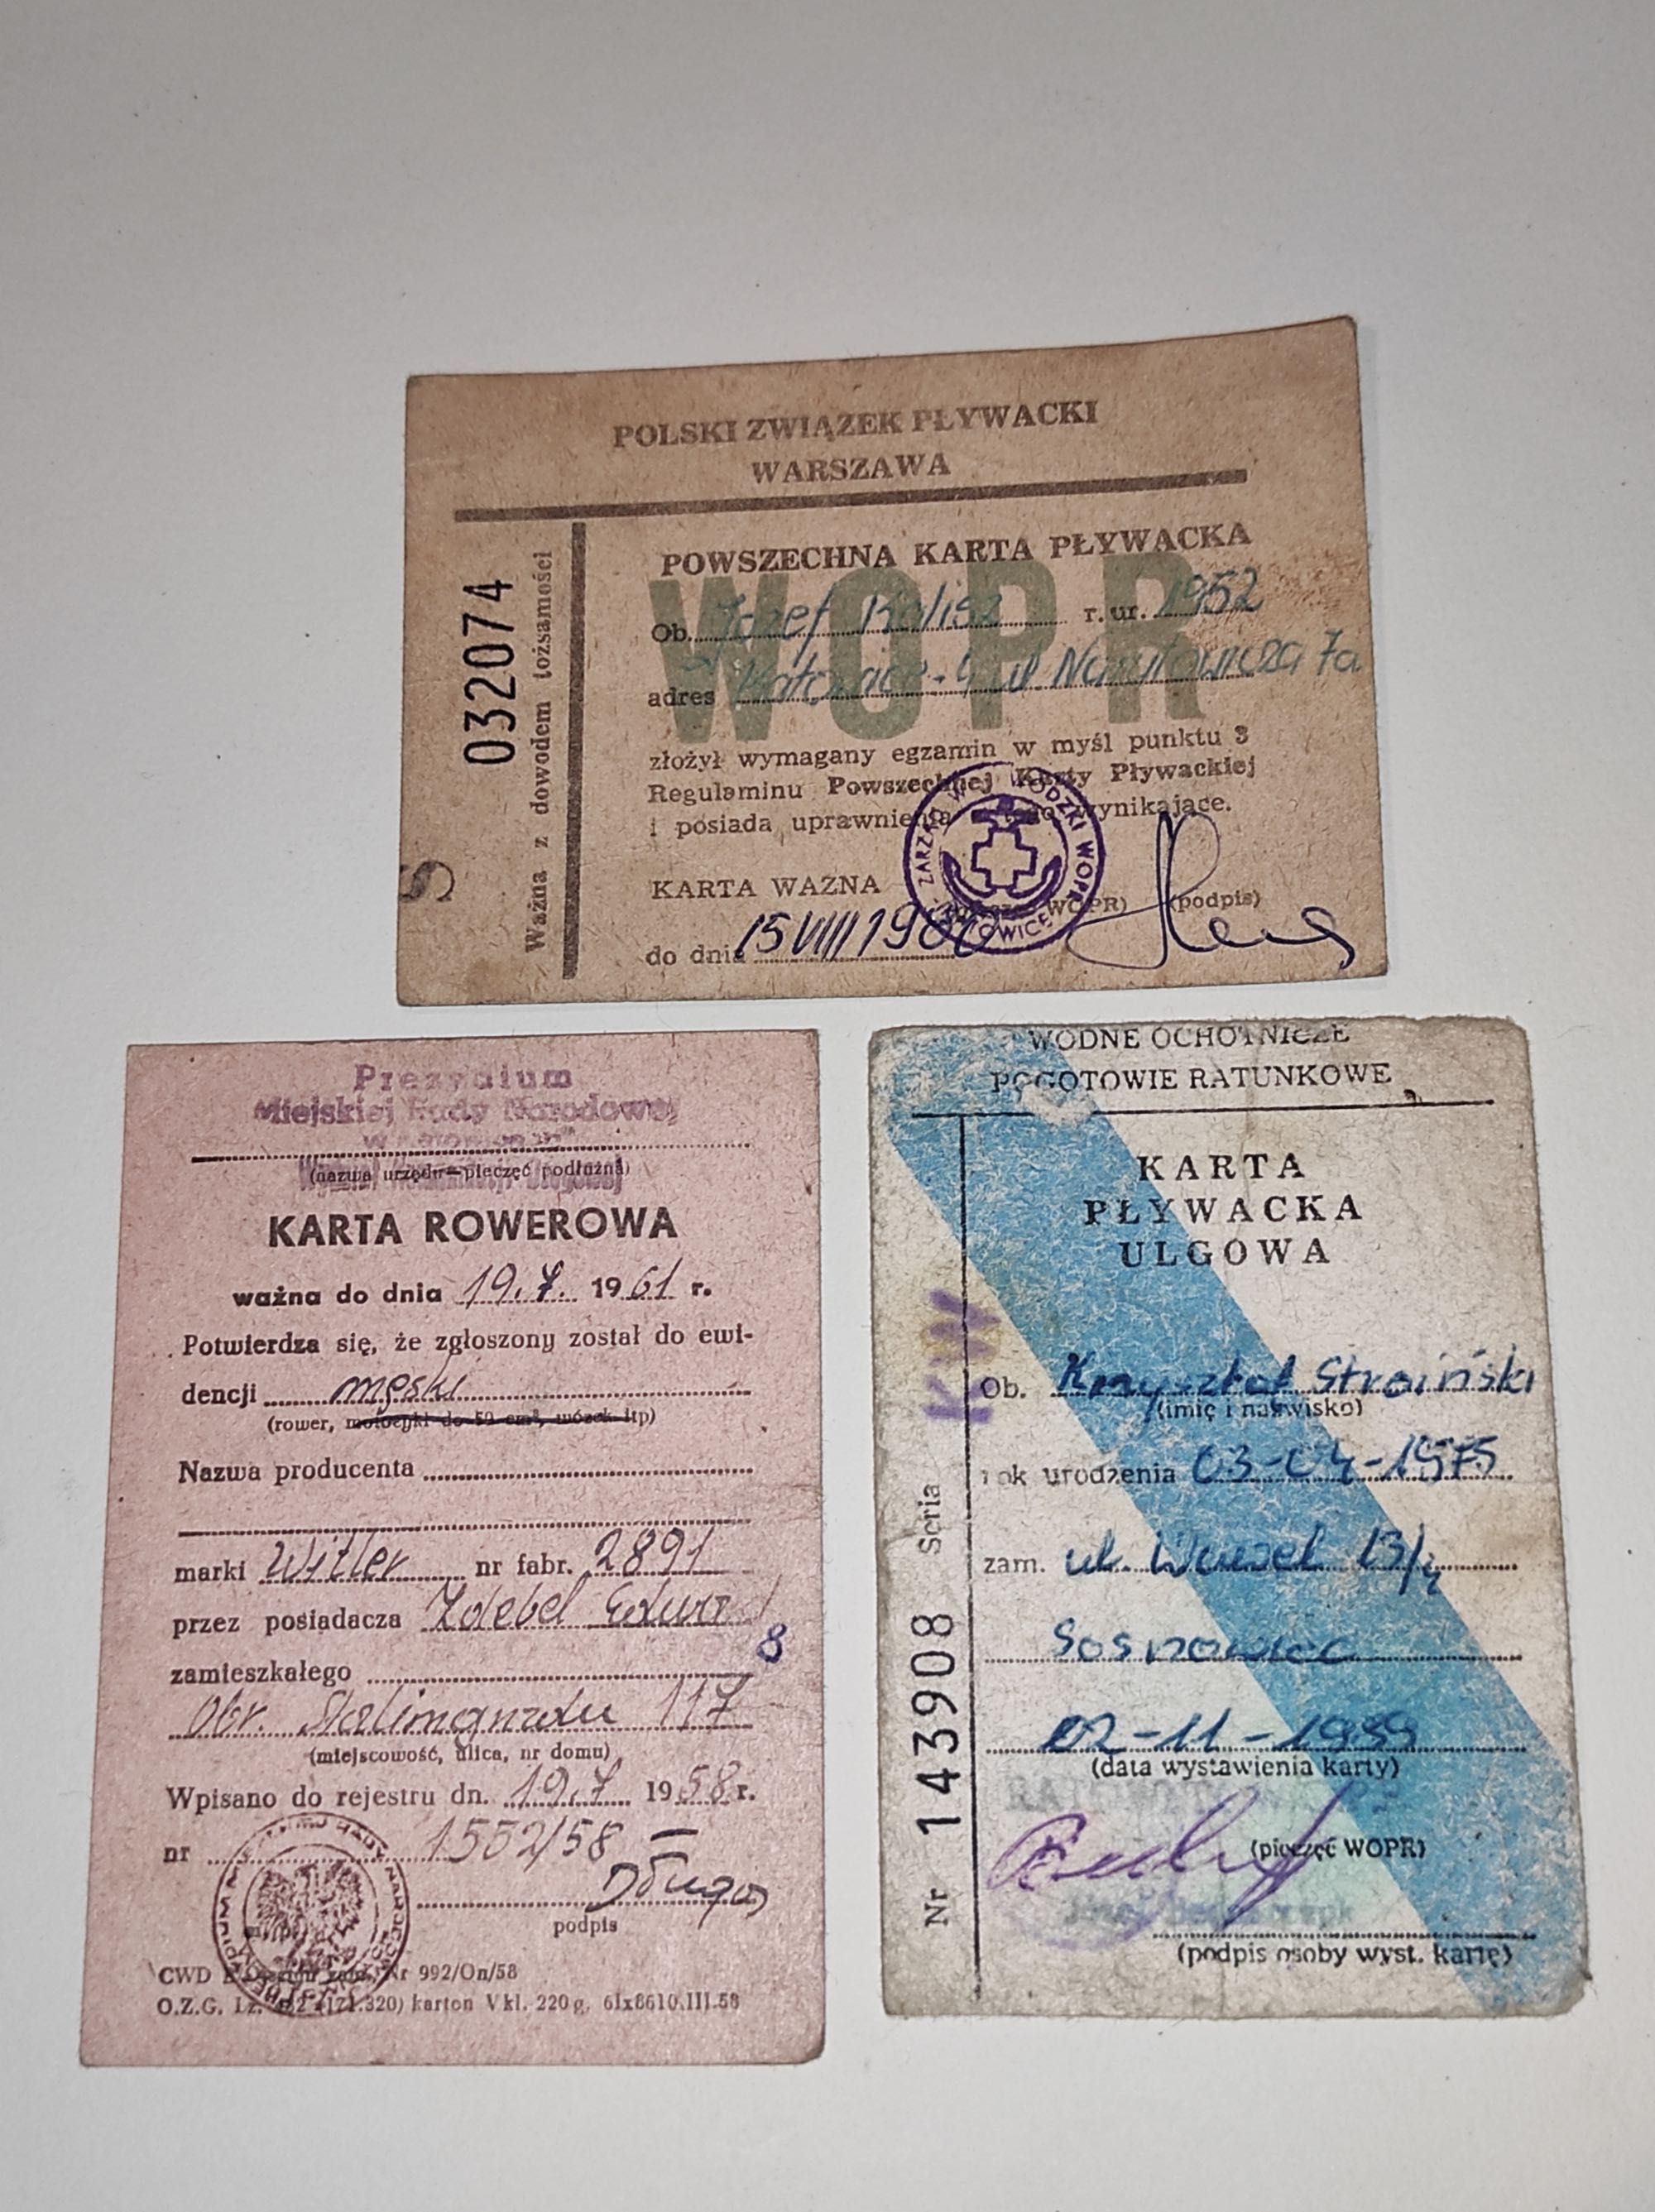 POLSKI ZWIĄZEK PŁYWACKI
WARSZAWA
032074
Ważna z dowodem tożsamości
POWSZECHNA KARTA PŁYWACKA
WOPR
Ob. Józef Kalisz r. ur. 1952
adres Katowice - ul Narutowicza 7a
złożył wymagany egzamin w myśl punktu 3
Regulaminu Powszechnej Karty Pływackiej
i posiada uprawnienia z tego wynikające.
KARTA WAŻNA
WOPR) (podpis)
do dnia 15 VIII 19
ZARZĄD WOJEWÓDZKI WOPR KATOWICE
S
Prezydium
Miejskiej Rady Narodowej
(nazwa urzędu—pieczęć podłużna)
KARTA ROWEROWA
ważna do dnia 19.7. 1961 r.
Potwierdza się, że zgłoszony został do ewi-
dencji męski
(rower, motocykl do 50 cm³, wózek itp)
Nazwa producenta
marki Witler nr fabr. 2891
przez posiadacza Zdebel
8
zamieszkałego
Obr. Stalingradu 117
(miejscowość, ulica, nr domu)
Wpisano do rejestru dn. 19.7 1958 r.
nr 1532/58
Długosz
podpis
CWD Nr 992/On/58
O.Z.G. karton V kl. 220 g.
WODNE OCHOTNICZE
POGOTOWIE RATUNKOWE
KARTA
PŁYWACKA
ULGOWA
KW
Seria
Nr 143908
Ob. Krzysztof Stroiński
(imię i nazwisko)
rok urodzenia 03-04-1975
zam. ul. Wawel 13/
Sosnowiec
02-11-1989
(data wystawienia karty)
(pieczęć WOPR)
(podpis osoby wyst. kartę)